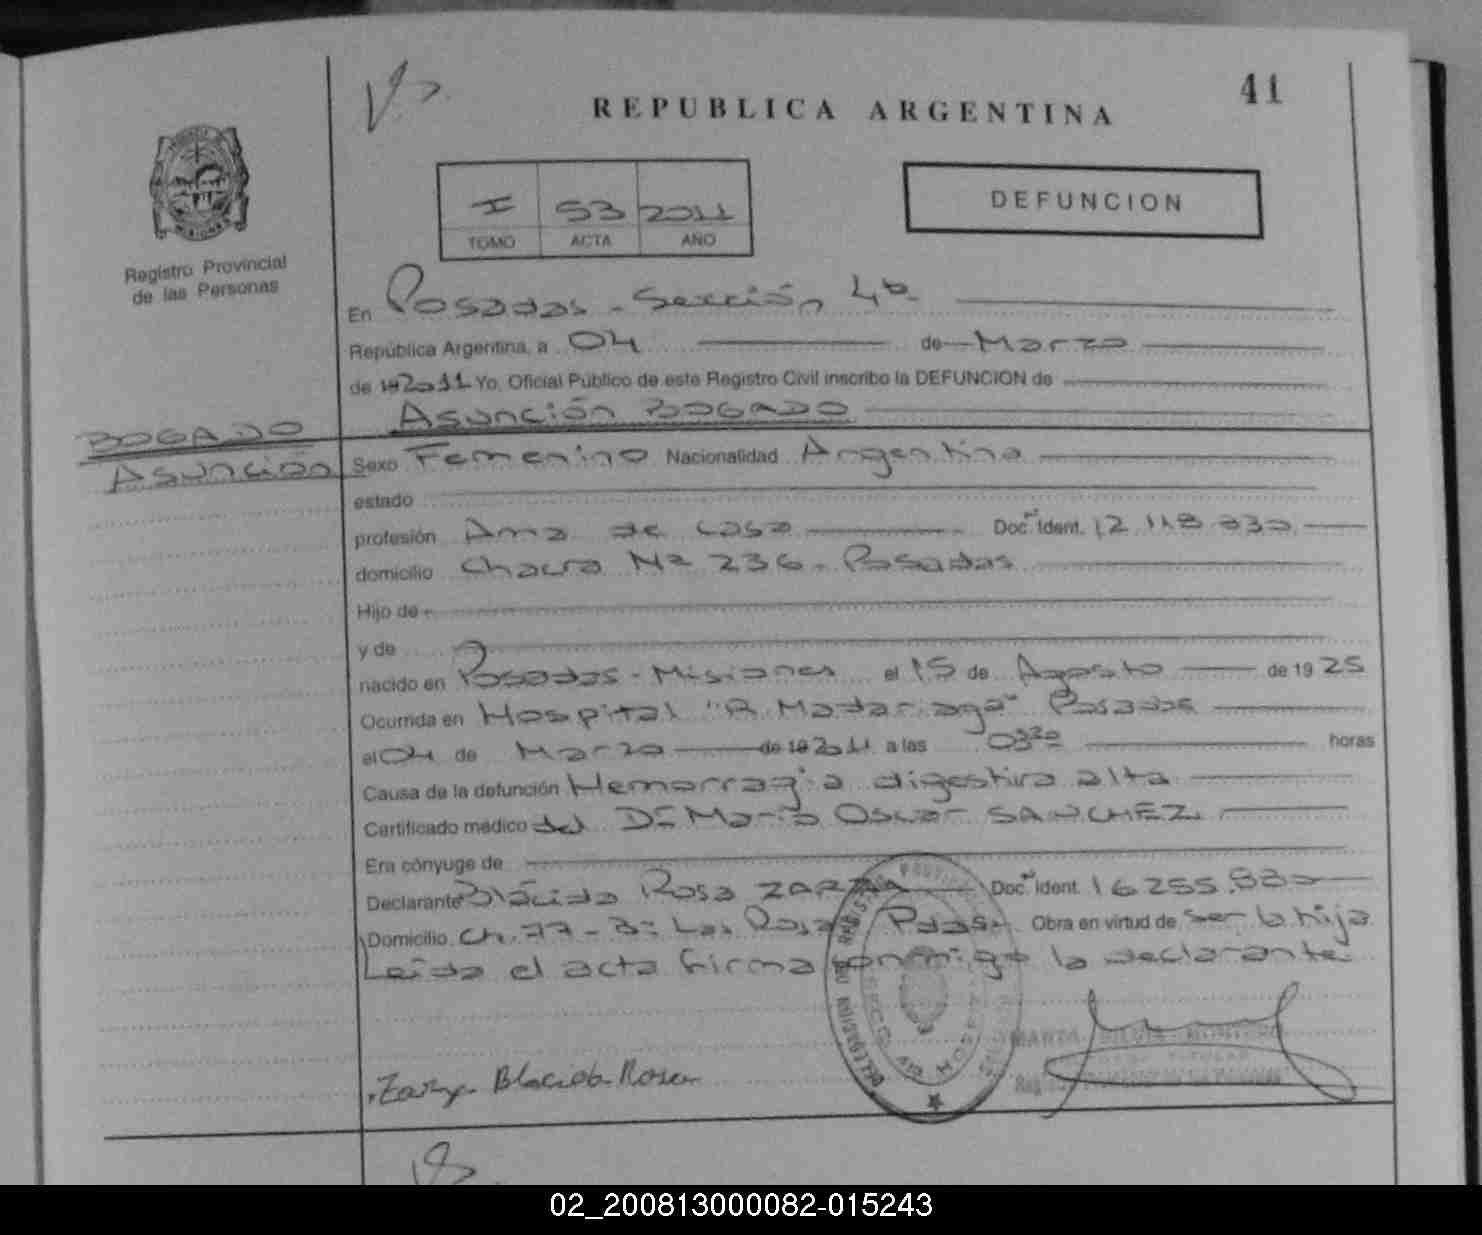 41
REPUBLICA ARGENTINA
I 53 2011
TOMO ACTA AÑO
DEFUNCION
MISIONES
Registro Provincial
de las Personas
En Posadas - Sección 4ª
República Argentina, a 04 de Marzo
de 19 2011 Yo, Oficial Público de este Registro Civil inscribo la DEFUNCION de
Asunción BOGADO
BOGADO
Asunción
Sexo Femenino Nacionalidad Argentina
estado
profesión Ama de casa Doc. Ident. 12.118.030
domicilio Chacra Nº 236 - Posadas
Hijo de
y de
nacido en Posadas - Misiones el 15 de Agosto de 19 25
Ocurrida en Hospital "R. Madariaga" Posadas
el 04 de Marzo de 19 2011 a las 03:20 horas
Causa de la defunción Hemorragia digestiva alta
Certificado médico del Dr Mario Oscar SANCHEZ
Era cónyuge de
Declarante Blácida Rosa Doc. Ident. 16.255.830
Domicilio Ch. 77 - Bº Las Rosas Pdas. Obra en virtud de ser la hija
Leída el acta firma conmigo la declarante.
Blacida Rosa
02_200813000082-015243